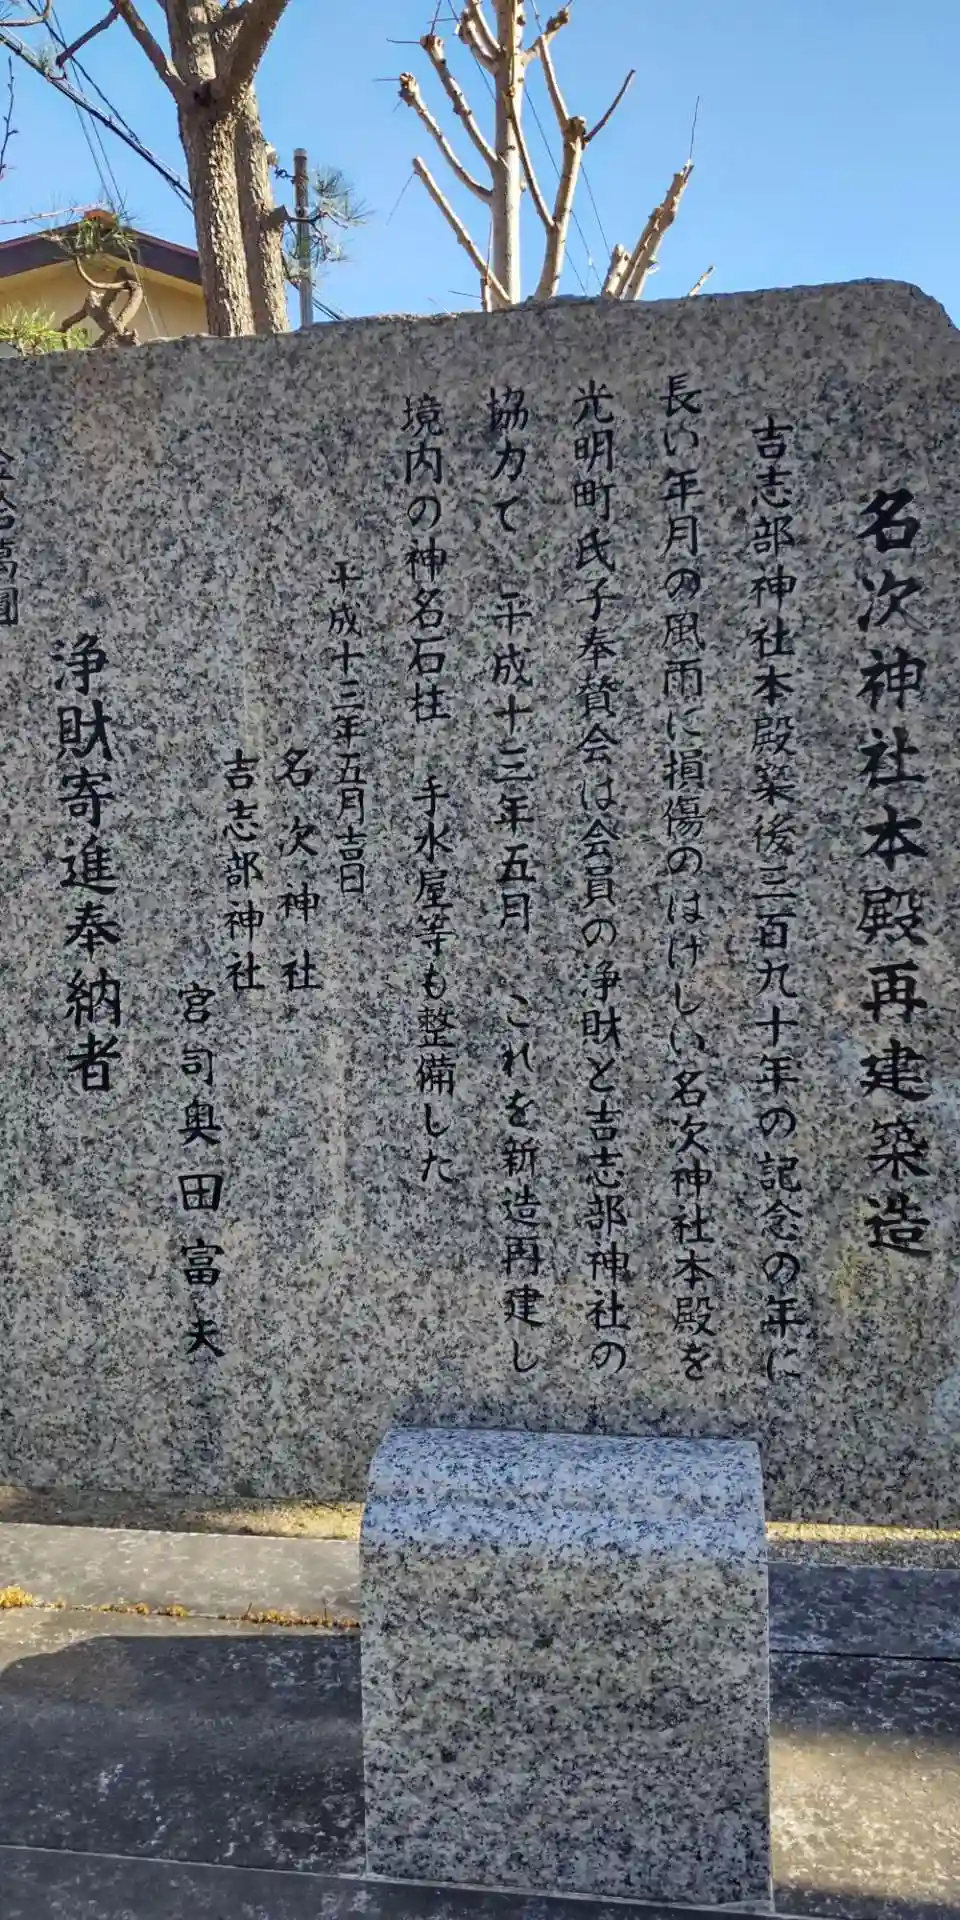 名次神社本殿再建築造
吉志部神社本殿築後三百九十年の記念の年に
長い年月の風雨に損傷のはげしい名次神社本殿を
光明町氏子奉賛会は会員の浄財と吉志部神社の
協力で 平成十三年五月 これを新造再建し
境内の神名石柱 手水屋等も整備した
平成十三年五月吉日
名次神社
吉志部神社
宮司奥田富夫
浄財寄進奉納者
金拾萬圓